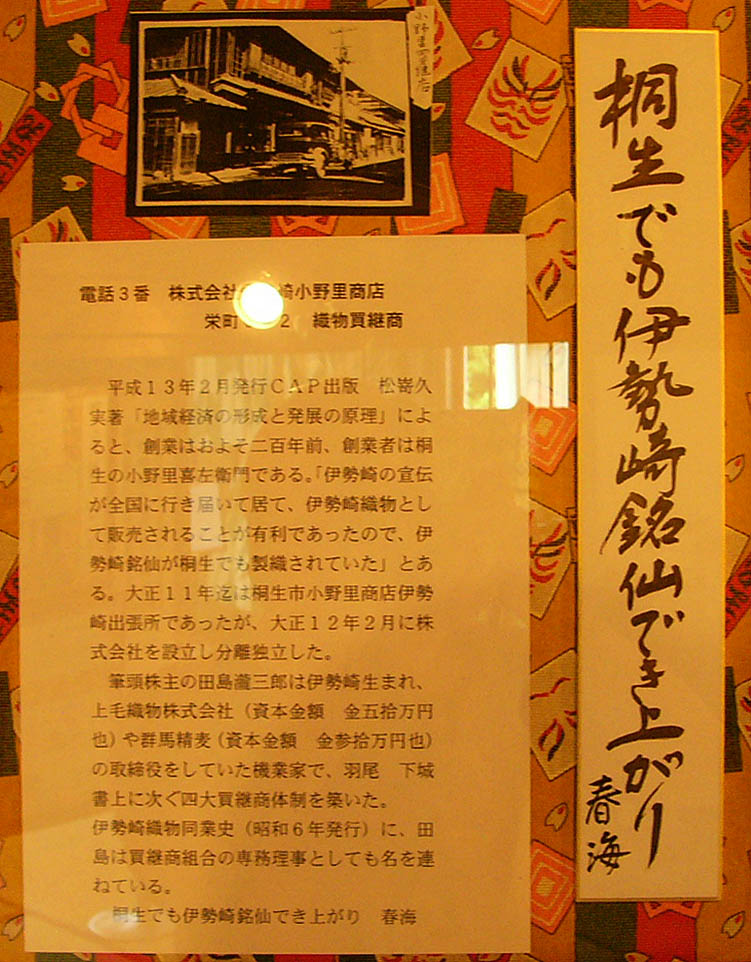 桐生でも伊勢崎銘仙でき上がり
春海
電話3番 株式会社 崎小野里商店
栄町 2 織物買継商
平成13年2月発行CAP出版 松嵜久
実著「地域経済の形成と発展の原理」によ
ると、創業はおよそ二百年前、創業者は桐
生の小野里喜左衛門である。「伊勢崎の宣伝
が全国に行き届いて居て、伊勢崎織物とし
て販売されることが有利であったので、伊
勢崎銘仙が桐生でも製織されていた」とあ
る。大正11年迄は桐生市小野里商店伊勢
崎出張所であったが、大正12年2月に株
式会社を設立し分離独立した。
筆頭株主の田島瀧三郎は伊勢崎生まれ、
上毛織物株式会社（資本金額 金五拾万円
也）や群馬精麦（資本金額 金参拾万円也）
の取締役をしていた機業家で、羽尾 下城
書上に次ぐ四大買継商体制を築いた。
伊勢崎織物同業史（昭和6年発行）に、田
島は買継商組合の専務理事としても名を連
ねている。
桐生でも伊勢崎銘仙でき上がり 春海